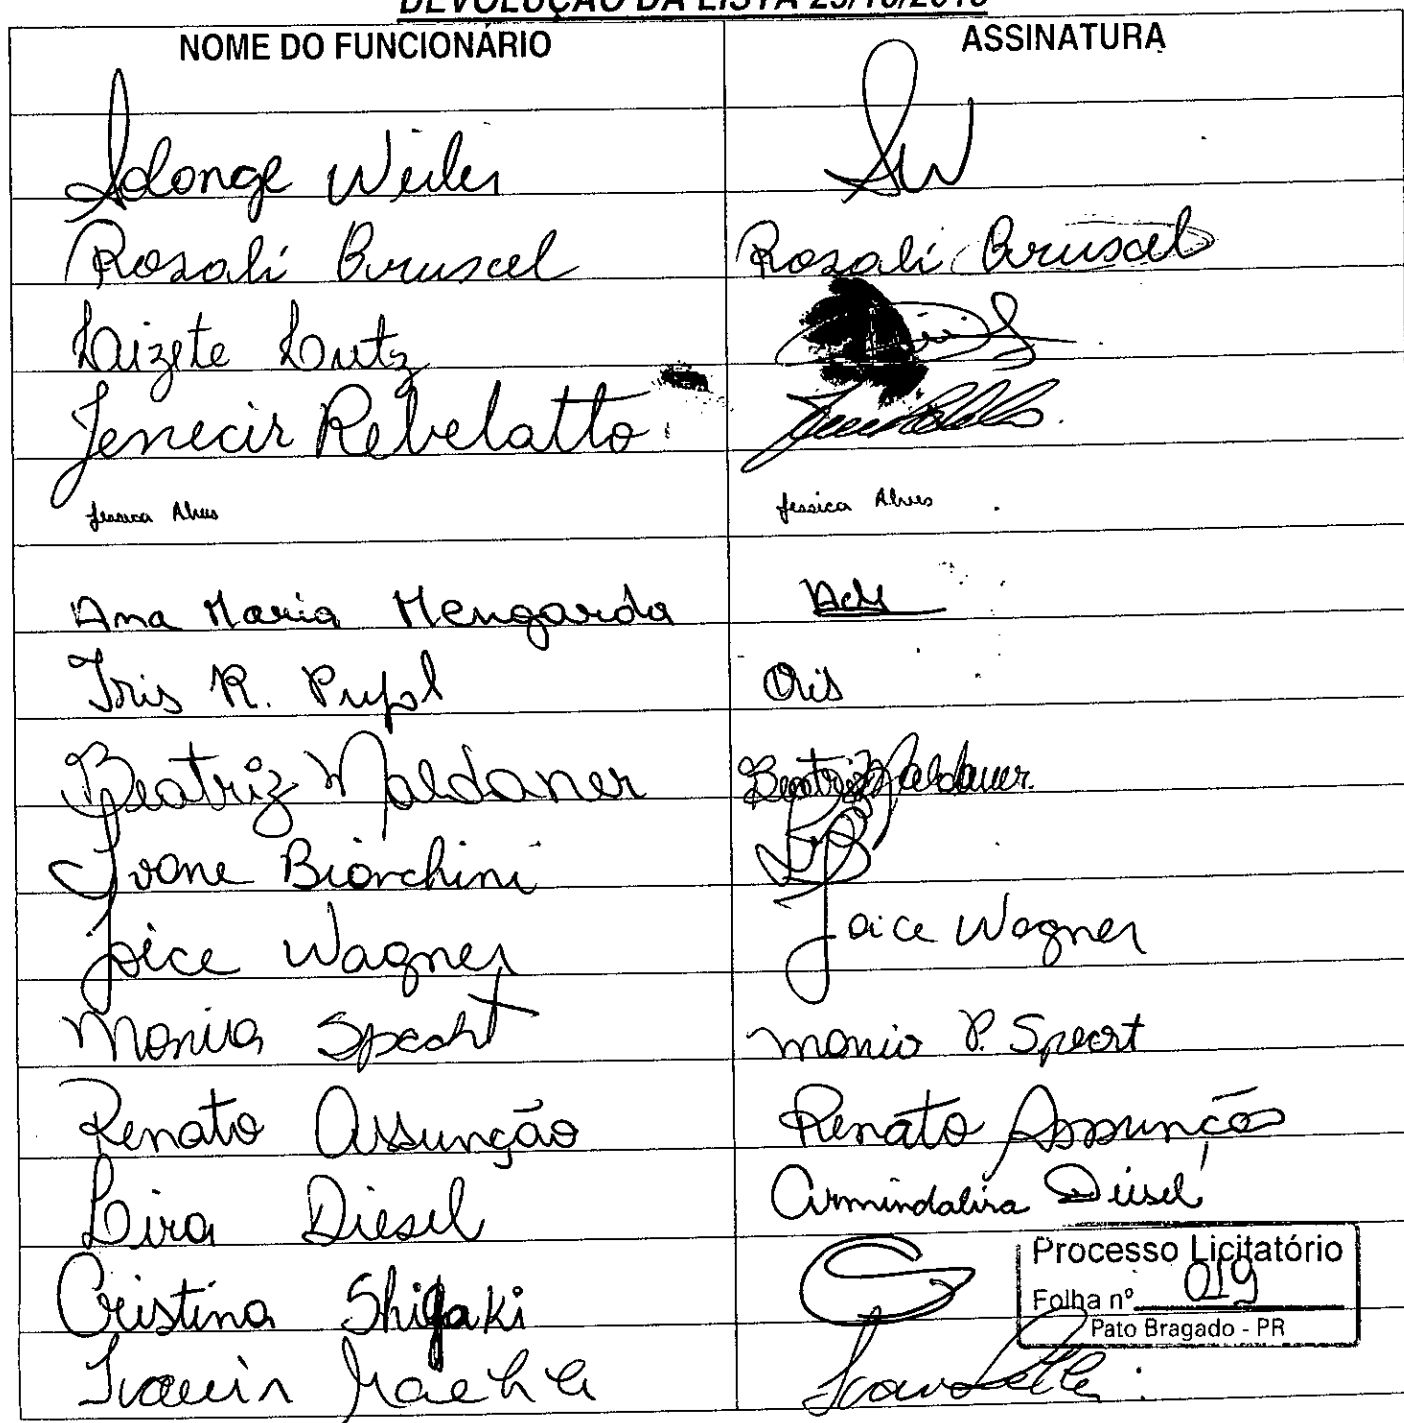 DEVOLUÇÃO DA LISTA
NOME DO FUNCIONÁRIO ASSINATURA
Solange Weiler SW
Rosali Bruscel Rosali Bruscel
Laizete Lutz
Jenecir Rebelatto
Jessica Alves Jessica Alves
Ana Maria Mengarda ACM
Iris R. Pupl Iris
Beatriz Maldaner Beatriz Maldaner.
Ivone Bianchini
Joice Wagner Joice Wagner
Monica Specht Monica P. Specht
Renato Assunção Renato Assunção
Lira Diesel Armindalira Diesel
Cristina Shigaki
Processo Licitatório
Folha nº 019
Pato Bragado - PR